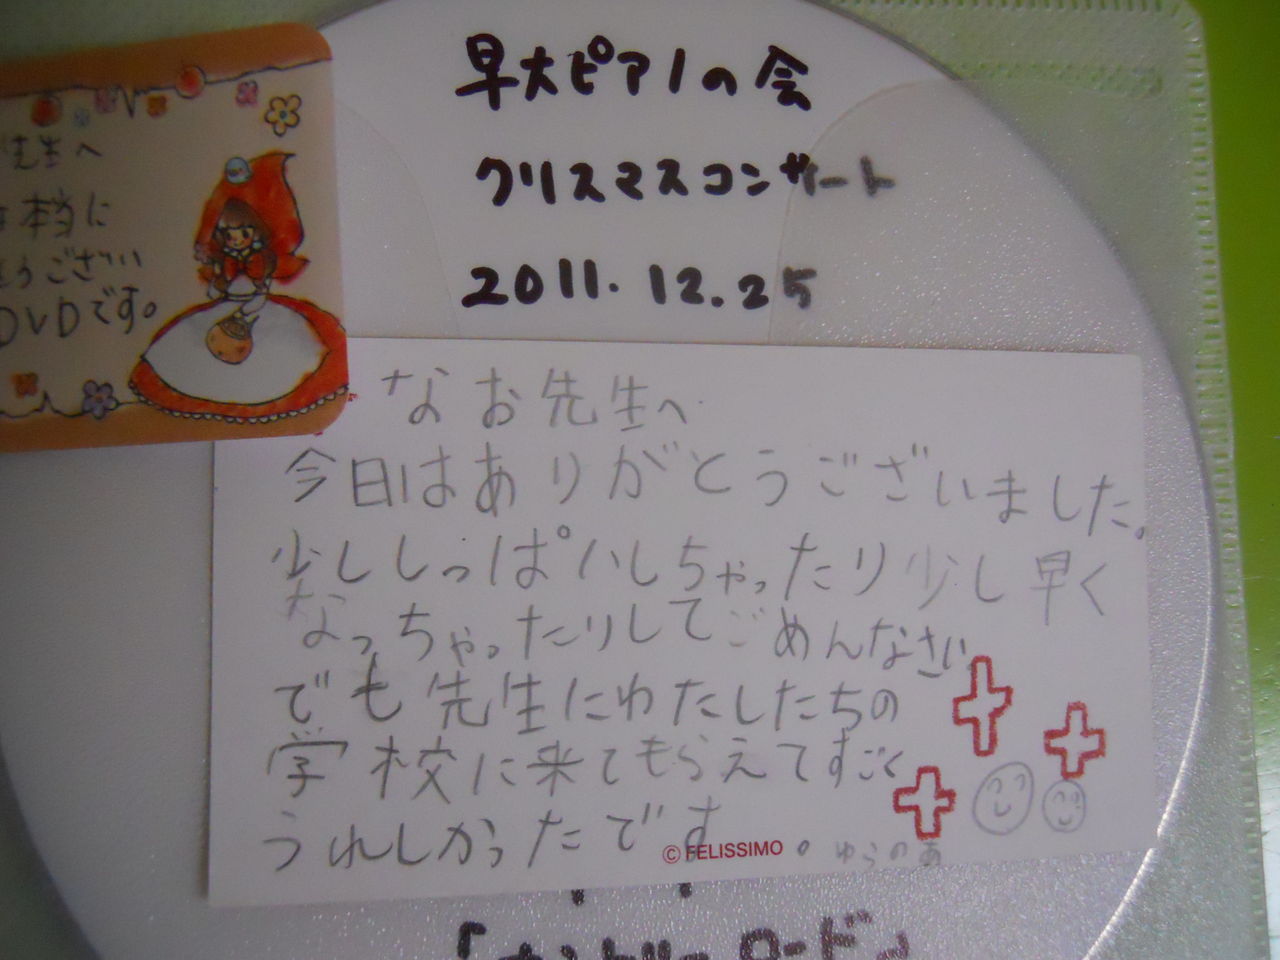 早大ピアノの会
クリスマスコンサート
2011.12.25
先生へ
本当に
うござい
DVDです。
なお先生へ
今日はありがとうございました。
少ししっぱいしちゃったり少し早く
なっちゃったりしてごめんなさい
でも先生にわたしたちの
学校に来てもらえてすごく
うれしかったです。
© FELISSIMO
ゆらのあ